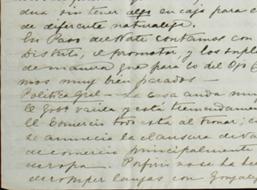 dua sin tener algo en caja para c
de diferente naturaleza.
En Paso del Norte contamos con
Distrito, el promotor, y los empl
de manera que para lo del Ojo C
mos muy bien parados -
Politica gral - La cosa anda muy
El Gov. varila y está tremendame
El Comercio esta al tronar; c
se anuncia la clausura de va
de comercio principalmente
de ropa. no se ha de
de romper lanzas con Gonzalez